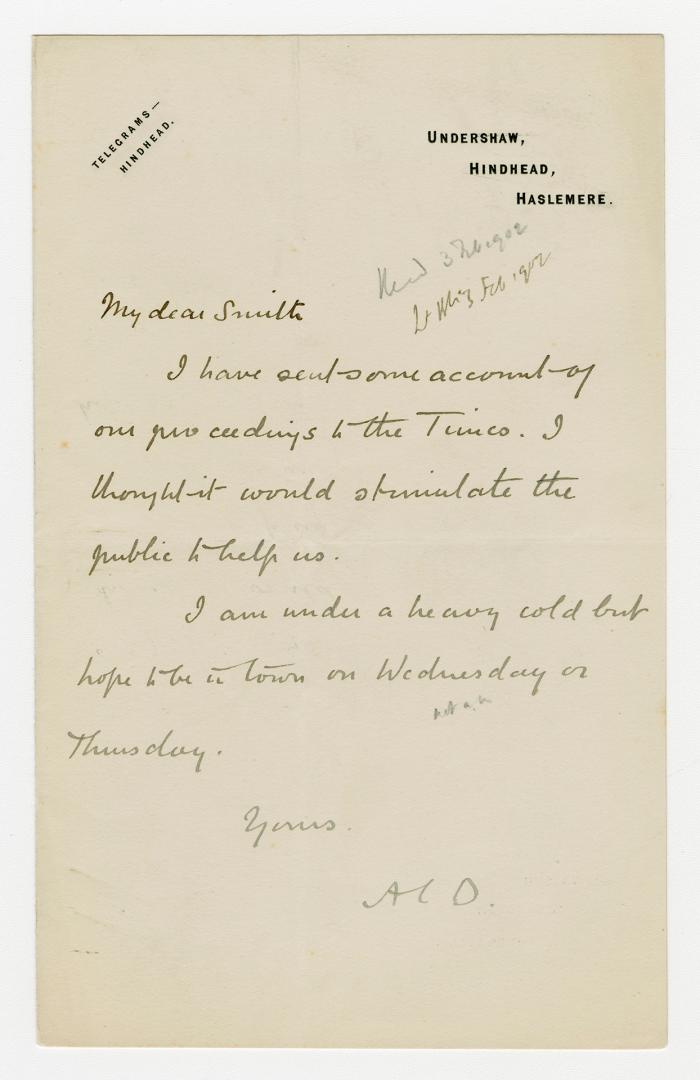 TELEGRAMS—
HINDHEAD.
UNDERSHAW,
HINDHEAD,
HASLEMERE.
3 Feb 1902
3 Feb 1902
My dear Smith
I have sent some account of
our proceedings to the Times. I
thought it would stimulate the
public to help us.
I am under a heavy cold but
hope to be in town on Wednesday or
Thursday.
Yours.
A C D.